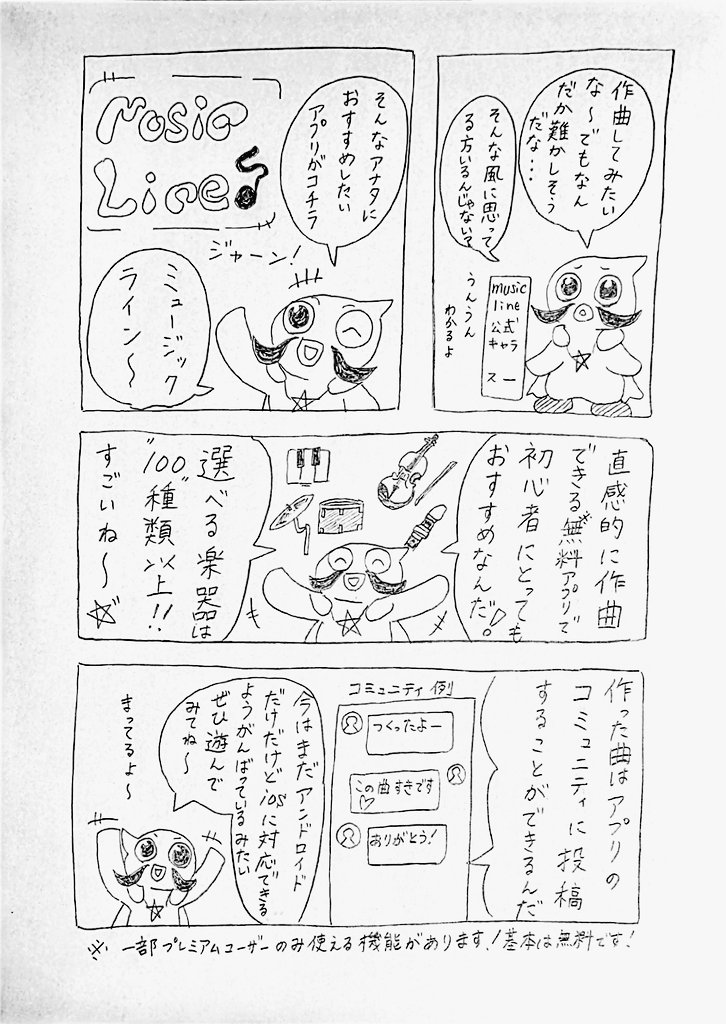 作曲してみたい
な〜でもなん
だか難かしそう
だな…
そんな風に思って
る方いるんじゃない?
うんうん
わかるよ
music
line
公式
キャラ
スー
そんなアナタに
おすすめしたい
アプリがコチラ
Music
Line
ジャーン!
ミュージック
ライン〜
直感的に作曲
できる無料アプリで
初心者にとっても
おすすめなんだ♡。
選べる楽器は
"100"種類以上!!
すごいね〜☆
作った曲はアプリの
コミュニティに投稿
することができるんだ
コミュニティ例
つくったよー
この曲すきです
♡
ありがとう!
今はまだアンドロイド
だけだけどiosに対応できる
ようがんばっているみたい
ぜひ遊んで
みてね〜
まってるよ〜
※一部プレミアムユーザーのみ使える機能があります!基本は無料です!